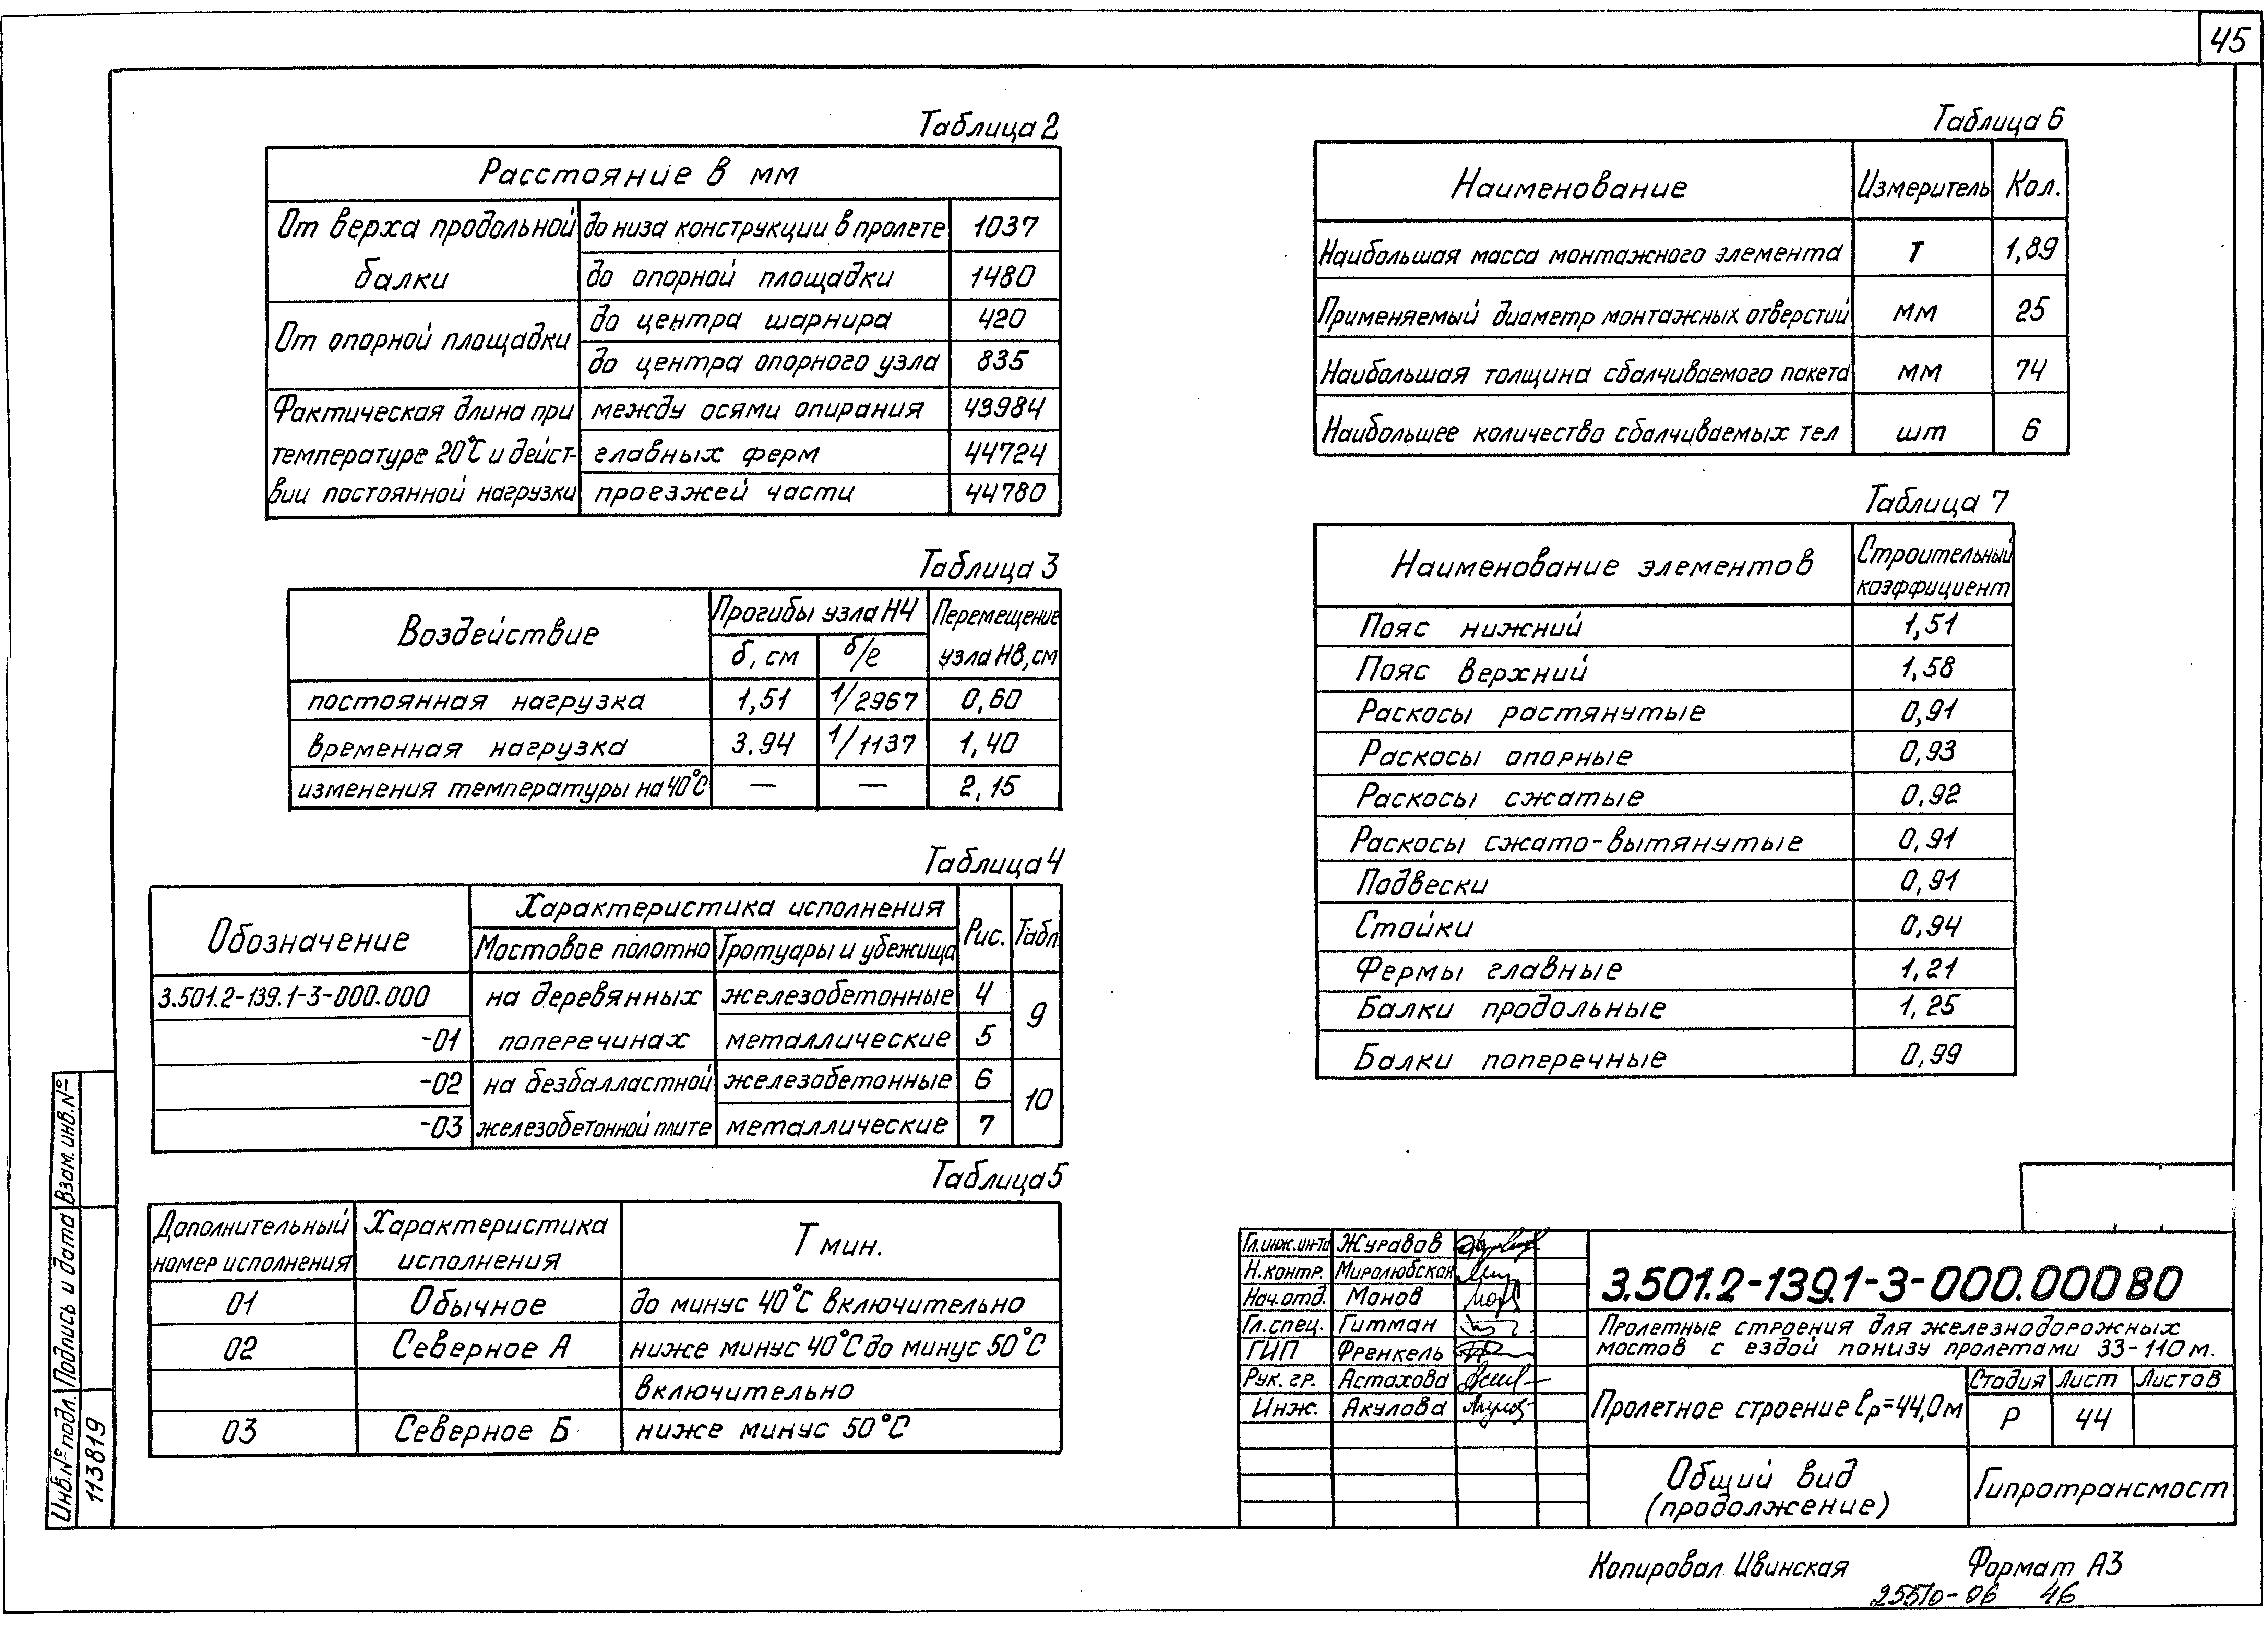 45
Таблица 2
Расстояние в мм
От верха продольной балки
до низа конструкции в пролете 1037
до опорной площадки 1480
От опорной площадки
до центра шарнира 420
до центра опорного узла 835
Фактическая длина при температуре 20°С и действии постоянной нагрузки
между осями опирания 43984
главных ферм 44724
проезжей части 44780
Таблица 3
Воздействие Прогибы узла Н4 Перемещение узла Н8, см
δ, см δ/ℓ
постоянная нагрузка 1,51 1/2967 0,60
временная нагрузка 3.94 1/1137 1,40
изменения температуры на 40°С — — 2,15
Таблица 4
Обозначение Характеристика исполнения Рис. Табл.
Мостовое полотно Тротуары и убежища
3.501.2-139.1-3-000.000 на деревянных железобетонные 4 9
-01 поперечинах металлические 5
-02 на безбалластной железобетонные 6 10
-03 железобетонной плите металлические 7
Таблица 5
Дополнительный номер исполнения Характеристика исполнения Т мин.
01 Обычное до минус 40°С включительно
02 Северное А ниже минус 40°С до минус 50°С
включительно
03 Северное Б ниже минус 50°С
Таблица 6
Наименование Измеритель Кол.
Наибольшая масса монтажного элемента т 1,89
Применяемый диаметр монтажных отверстий мм 25
Наибольшая толщина сбалчиваемого пакета мм 74
Наибольшее количество сбалчиваемых тел шт 6
Таблица 7
Наименование элементов Строительный коэффициент
Пояс нижний 1,51
Пояс верхний 1,58
Раскосы растянутые 0,91
Раскосы опорные 0,93
Раскосы сжатые 0,92
Раскосы сжато-вытянутые 0,91
Подвески 0,91
Стойки 0,94
Фермы главные 1,21
Балки продольные 1,25
Балки поперечные 0,99
Гл.инж.ин-та Журавов
Н.контр. Миролюбская
Нач.отд. Монов
Гл.спец. Гитман
ГИП Френкель
Рук. гр. Астахова
Инж. Акулова
3.501.2-139.1-3-000.000 80
Пролетные строения для железнодорожных
мостов с ездой понизу пролетами 33-110 м.
Пролетное строение ℓр=44,0м
Стадия Лист Листов
Р 44
Общий вид
(продолжение)
Гипротрансмост
Инв.№ подл. Подпись и дата Взам. инв.№
113819
Копировал Ивинская Формат А3
25510-06 46